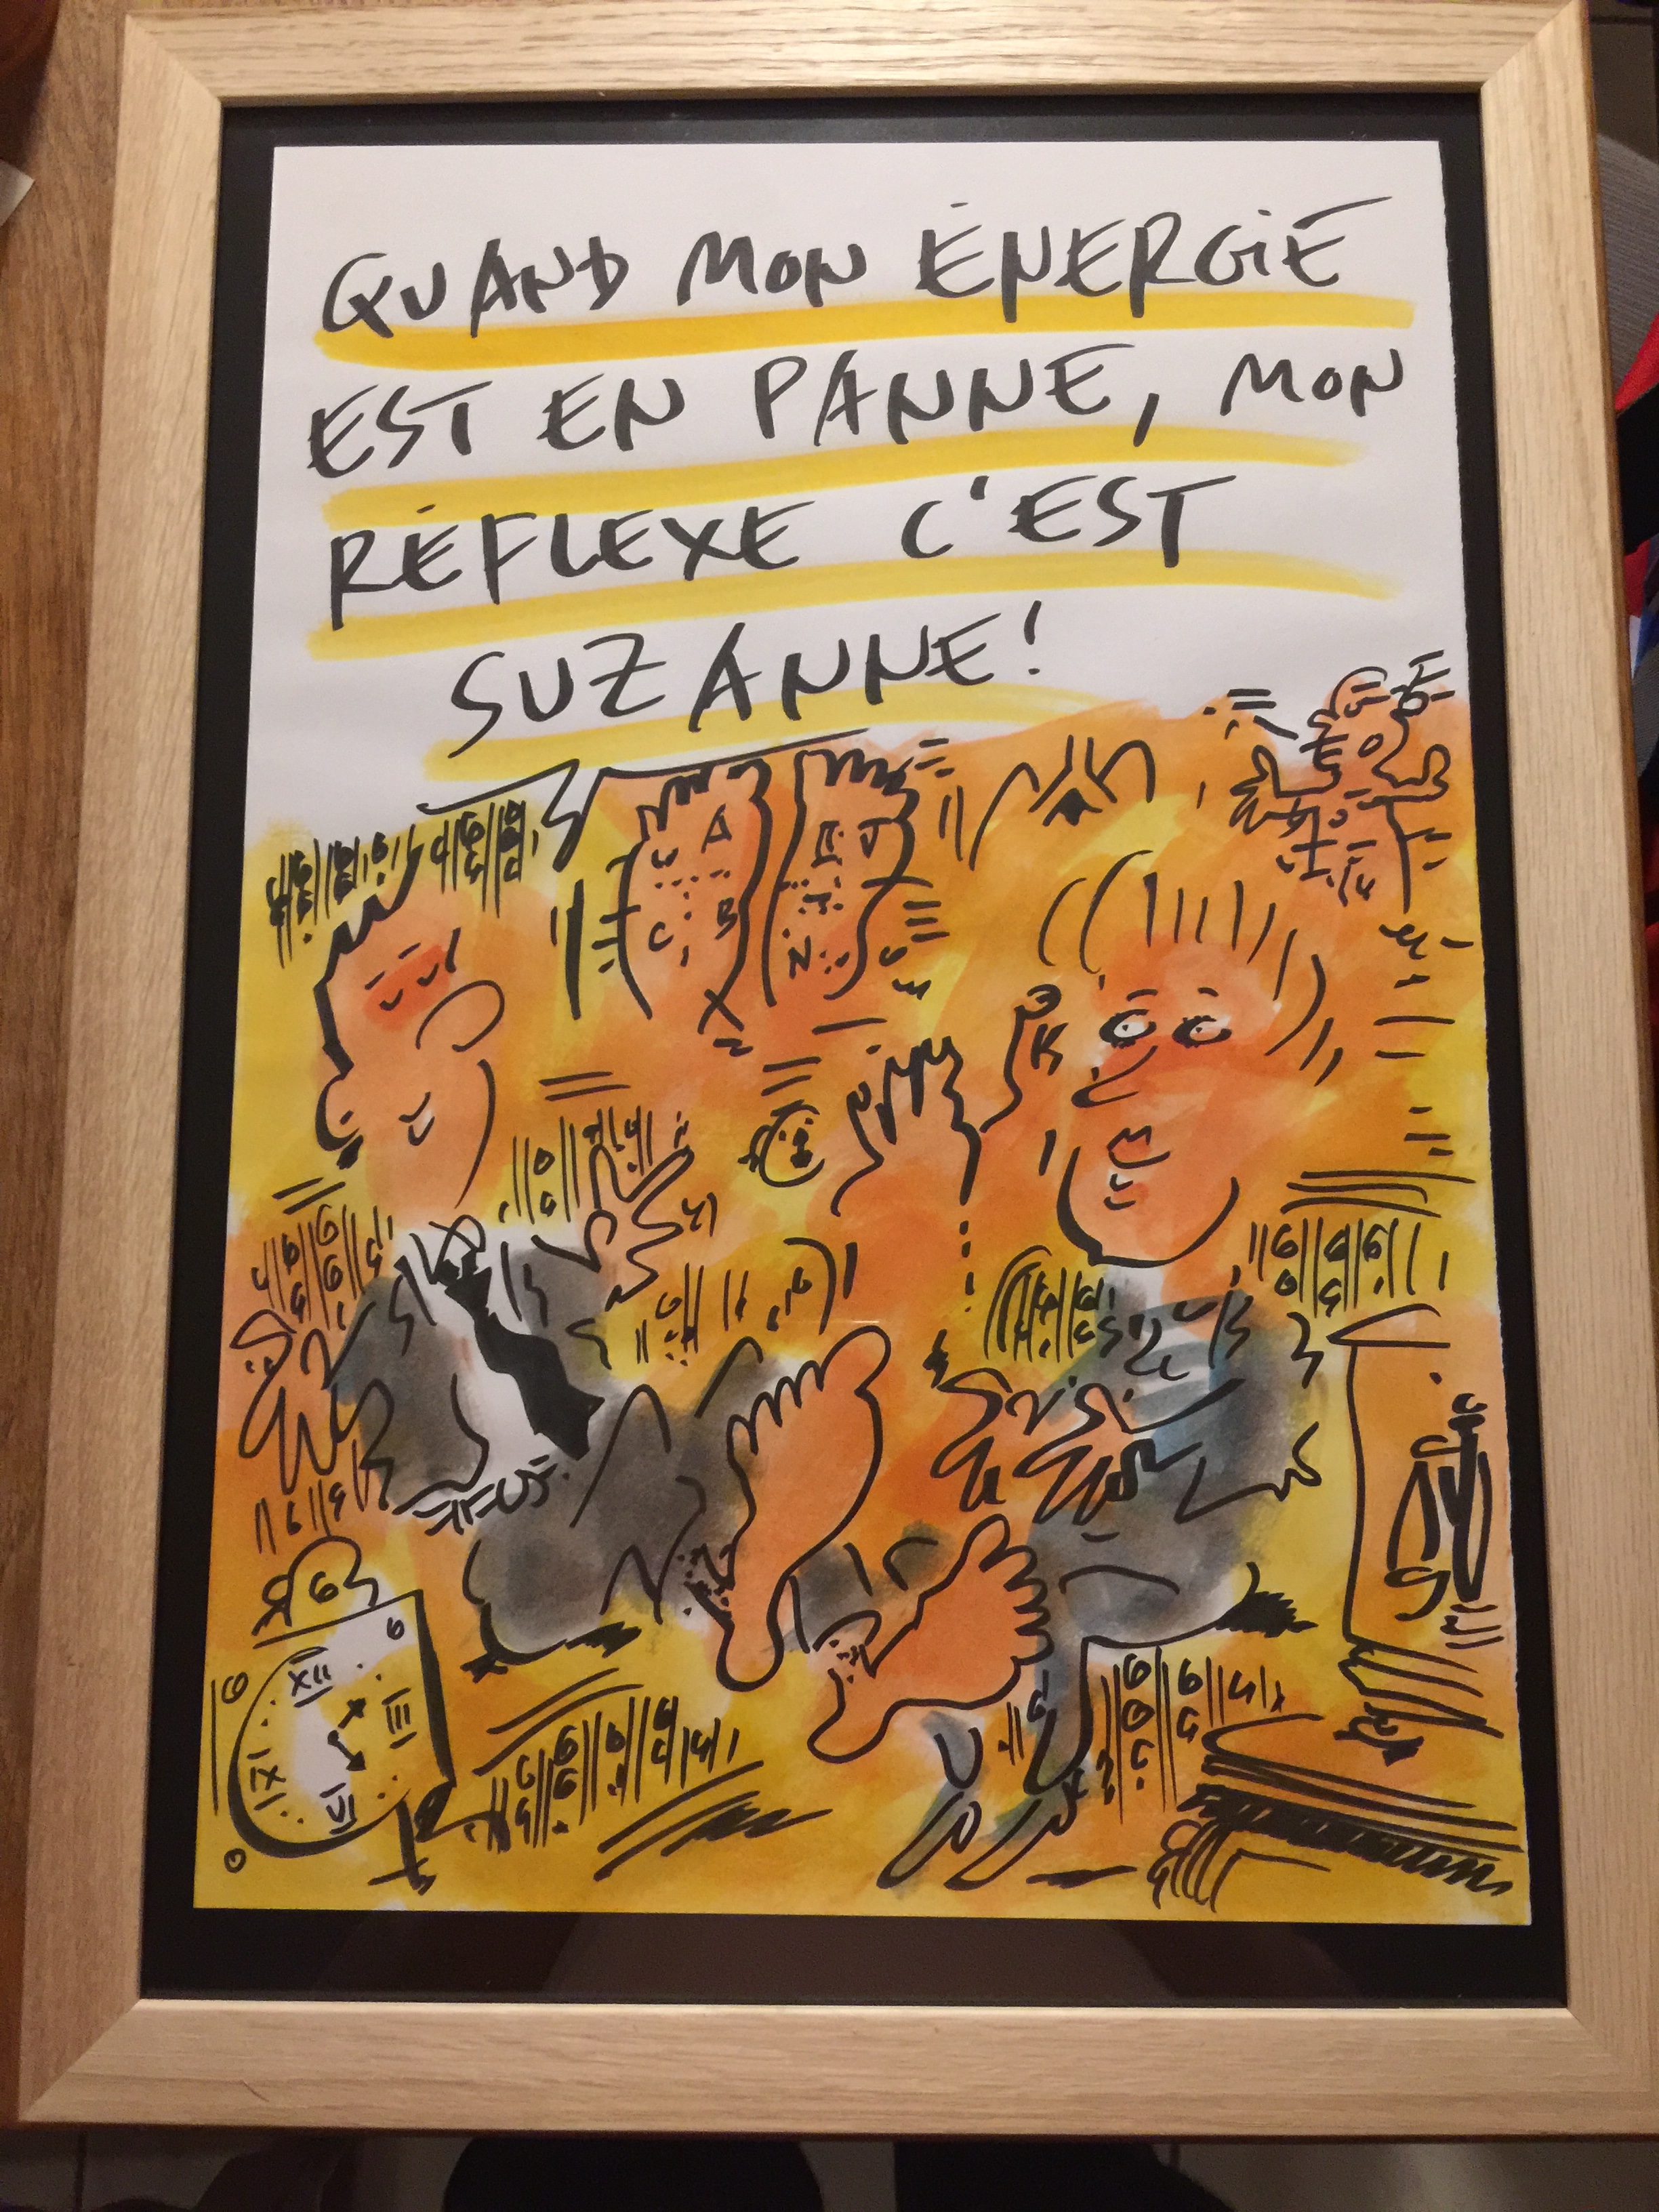 QUAND MON ÉNERGIE
EST EN PANNE, MON
RÉFLEXE C'EST
SUZANNE!
A
C
B
N
XII
III
VI
IX